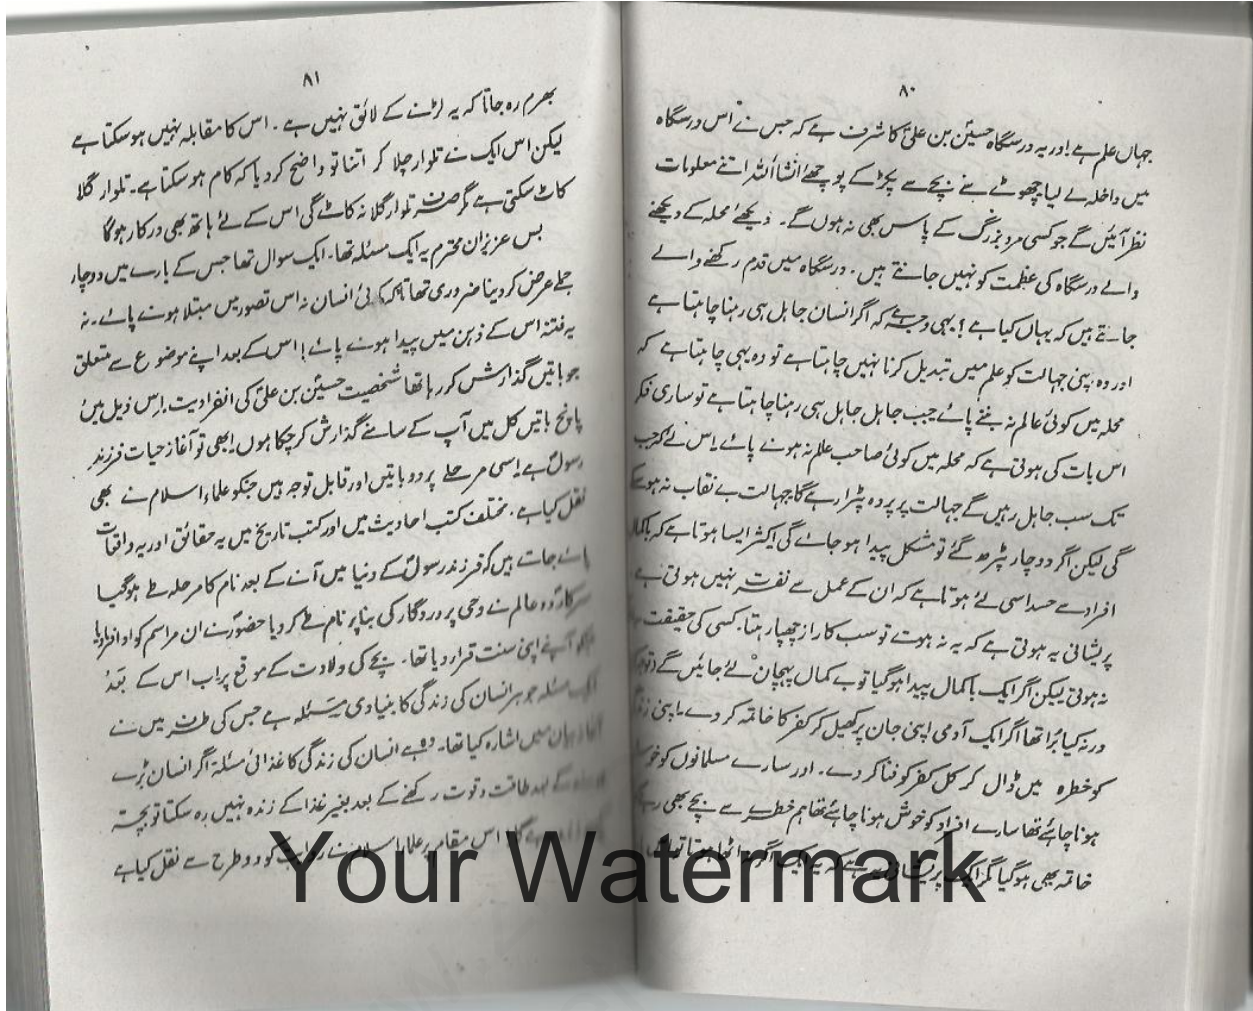 ۸۰
جہاں علم ہے اور یہ درسگاہ حسینؑ بن علیؑ کا شرف ہے کہ جس نے اس درسگاہ
میں داخلہ لے لیا چھوٹے سے بچے سے پکڑ کے پوچھئے انشاء اللہ اتنے معلومات
نظر آئیں گے جو کسی مرد بزرگ کے پاس بھی نہ ہوں گے۔ دیکھئے محلہ کے دیکھنے
والے درسگاہ کی عظمت کو نہیں جانتے ہیں۔ درسگاہ میں قدم رکھنے والے
جانتے ہیں کہ یہاں کیا ہے؟ یہی وجہ ہے کہ اگر انسان جاہل ہی رہنا چاہتا ہے
اور وہ اپنی جہالت کو علم میں تبدیل کرنا نہیں چاہتا ہے تو وہ یہی چاہتا ہے کہ
محلہ میں کوئی عالم نہ بننے پائے جب جاہل جاہل ہی رہنا چاہتا ہے تو ساری فکر
اس بات کی ہوتی ہے کہ محلہ میں کوئی صاحب علم نہ ہونے پائے اس لئے کہ جب
تک سب جاہل رہیں گے جہالت پر پردہ پڑا رہے گا جہالت بے نقاب نہ ہو سکے
گی لیکن اگر دو چار پڑھ گئے تو مشکل پیدا ہو جائے گی اکثر ایسا ہوتا ہے کہ باکمال
افراد سے حسد اسی لئے ہوتا ہے کہ ان کے عمل سے نفرت نہیں ہوتی ہے
پریشانی یہ ہوتی ہے کہ یہ نہ ہوتے تو سب کا راز چھپا رہتا۔ کسی کی حقیقت
نہ ہوتی لیکن اگر ایک باکمال پیدا ہو گیا تو بے کمال پہچان لئے جائیں گے
ورنہ کیا بُرا تھا اگر ایک آدمی اپنی جان پر کھیل کر کفر کا خاتمہ کر دے۔ اپنی
کو خطرہ میں ڈال کر کل کفر کو فنا کر دے۔ اور سارے مسلمانوں کو
ہونا چاہئے تھا سارے افراد کو خوش ہونا چاہئے تھا ہم خطرے سے بچے بھی رہے
خاتمہ بھی ہو گیا مگر ایک پریشانی یہ ہے کہ یہ ایک اگر نہ اٹھا ہوتا تو
۸۱
بھرم رہ جاتا کہ یہ لڑنے کے لائق نہیں ہے۔ اس کا مقابلہ نہیں ہو سکتا ہے
لیکن اس ایک نے تلوار چلا کر اتنا تو واضح کر دیا کہ کام ہو سکتا ہے۔ تلوار گلا
کاٹ سکتی ہے مگر صرف تلوار گلا نہ کاٹے گی اس کے لئے ہاتھ بھی درکار ہوگا
بس عزیزان محترم یہ ایک مسئلہ تھا۔ ایک سوال تھا جس کے بارے میں دو چار
جملے عرض کر دینا ضروری تھا تاکہ کوئی انسان نہ اس تصور میں مبتلا ہونے پائے۔ نہ
یہ فتنہ اس کے ذہن میں پیدا ہونے پائے! اس کے بعد اپنے موضوع سے متعلق
جو باتیں گذارش کر رہا تھا شخصیت حسینؑ بن علیؑ کی انفرادیت۔ اس ذیل میں
پانچ باتیں کل میں آپ کے سامنے گذارش کر چکا ہوں ابھی تو آغاز حیات فرزند
رسولؐ ہے اسی مرحلے پر دو باتیں اور قابل توجہ ہیں جنکو علماء اسلام نے بھی
نقل کیا ہے۔ مختلف کتب احادیث میں اور کتب تاریخ میں یہ حقائق اور یہ واقعات
پائے جاتے ہیں کہ فرزند رسولؐ کے دنیا میں آنے کے بعد نام کا مرحلہ طے ہو گیا
سرکار دو عالم نے وحی پروردگار کی بنا پر نام طے کر دیا حضورؐ نے ان مراسم کو ادا فرمایا
جنکو آپ نے اپنی سنت قرار دیا تھا۔ بچے کی ولادت کے موقع پر اب اس کے بعد
ایک مسئلہ جو ہر انسان کی زندگی کا بنیادی مسئلہ ہے جس کی طرف میں نے
آغاز بیان میں اشارہ کیا تھا۔ وہ ہے انسان کی زندگی کا غذائی مسئلہ اگر انسان بڑے
کے بعد طاقت و قوت رکھنے کے بعد بغیر غذا کے زندہ نہیں رہ سکتا تو بچہ
اس مقام پر علماء اسلام نے روایت کو دو طرح سے نقل کیا ہے
Your Watermark